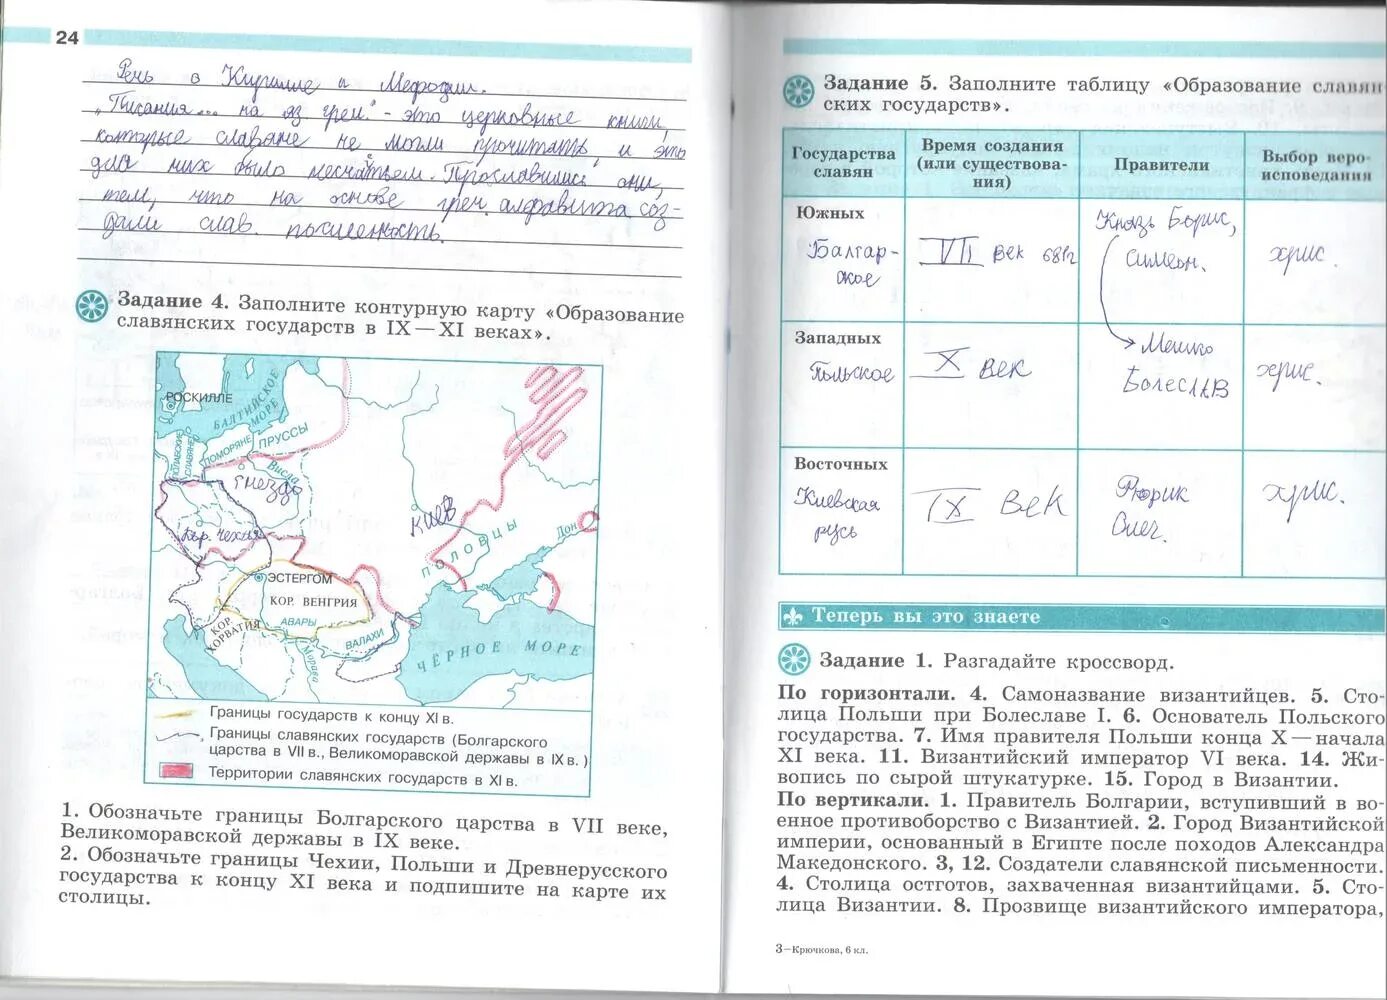 24
Речь о Кирилле и Мефодии.
„Писания... на яз греч." - это церковные книги,
которые славяне не могли прочитать, и это
для них было несчастьем. Прославились они,
тем, что на основе греч. алфавита соз-
дали слав. письменность.
Задание 4. Заполните контурную карту «Образование
славянских государств в IX — XI веках».
РОСКИЛЛЕ
БАЛТИЙСКОЕ
МОРЕ
ПРУССЫ
ПОМОРЯНЕ
ПОЛАБСКИЕ
СЛАВЯНЕ
Висла
Гнездо
Киев
Кор. Чехия
ПОЛОВЦЫ
Дон
ЭСТЕРГОМ
КОР. ВЕНГРИЯ
АВАРЫ
КОР.
ХОРВАТИЯ
ВАЛАХИ
Морава
ЧЁРНОЕ МОРЕ
Границы государств к концу XI в.
Границы славянских государств (Болгарского
царства в VII в., Великоморавской державы в IX в. )
Территории славянских государств в XI в.
1. Обозначьте границы Болгарского царства в VII веке,
Великоморавской державы в IX веке.
2. Обозначьте границы Чехии, Польши и Древнерусского
государства к концу XI века и подпишите на карте их
столицы.
Задание 5. Заполните таблицу «Образование славян-
ских государств».
Государства
славян
Время создания
(или существова-
ния)
Правители
Выбор веро-
исповедания
Южных
Балгар-
ское
VII век 681г
Князь Борис,
Симеон.
хрис.
Западных
Польское
X век
Мешко
Болеслав
хрис.
Восточных
Киевская
русь
IX век
Рюрик
Олег.
хрис.
Теперь вы это знаете
Задание 1. Разгадайте кроссворд.
По горизонтали. 4. Самоназвание византийцев. 5. Сто-
лица Польши при Болеславе I. 6. Основатель Польского
государства. 7. Имя правителя Польши конца X — начала
XI века. 11. Византийский император VI века. 14. Жи-
вопись по сырой штукатурке. 15. Город в Византии.
По вертикали. 1. Правитель Болгарии, вступивший в во-
енное противоборство с Византией. 2. Город Византийской
империи, основанный в Египте после походов Александра
Македонского. 3, 12. Создатели славянской письменности.
4. Столица остготов, захваченная византийцами. 5. Сто-
лица Византии. 8. Прозвище византийского императора,
3—Крючкова, 6 кл.